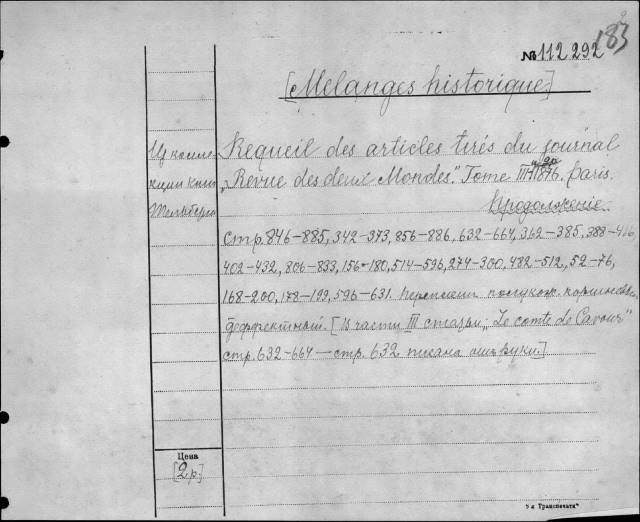 183
№112.292
[Mélanges historique]
Из коллекции книг
Requeil des articles tirés du journal
„Revue des deux Mondes". Tome III 1876. Paris.
Продолженіе
Стр. 846-885, 342-373, 856-886, 632-664, 362-385, 388-416,
402-432, 806-833, 156-180, 514-596, 274-300, 482-512, 52-76,
168-200, 178-199, 596-631. Переплет полукож. коричнев.
дефектный. [В части III статьи „Le comte de Cavour"
стр. 632-664 — стр. 632 писана отъ руки.]
Цена
[2р.]
5-я Транспечать